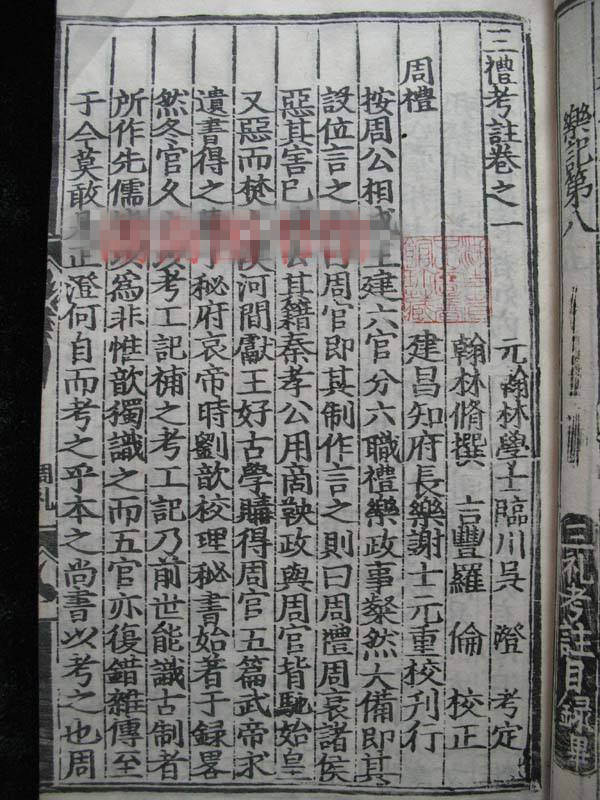 樂記第八
三礼考註目録畢
三禮考註卷之一
元翰林學士臨川吳 澄 考定
翰林脩撰 豐羅 倫 校正
建昌知府長樂謝士元重校刊行
周禮
按周公相成王建六官分六職禮樂政事粲然大備即其
設位言之周官即其制作言之則曰周禮周衰諸侯
惡其害已去其籍秦孝公用商鞅政與周官背馳始皇
又惡而焚漢河間獻王好古學購得周官五篇武帝求
遺書得之于秘府哀帝時劉歆校理秘書始著于録畧
然冬官久以考工記補之考工記乃前世能識古制者
所作先儒以為非惟歆獨識之而五官亦復錯雜傳至
于今莫敢是正澄何自而考之乎本之尚書以考之也周
周礼